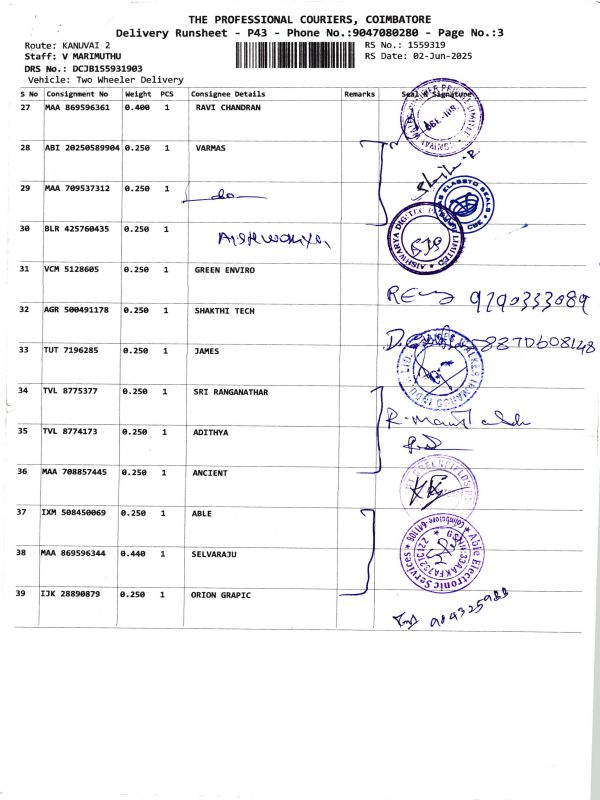 THE PROFESSIONAL COURIERS, COIMBATORE
Delivery Runsheet - P43 - Phone No.:9047080280 - Page No.:3
Route: KANUVAI 2 RS No.: 1559319
Staff: V MARIMUTHU RS Date: 02-Jun-2025
DRS No.: DCJB155931903
Vehicle: Two Wheeler Delivery
S No Consignment No Weight PCS Consignee Details Remarks Seal & Signature
27 MAA 869596361 0.400 1 RAVI CHANDRAN
28 ABI 20250589904 0.250 1 VARMAS
29 MAA 709537312 0.250 1 do
30 BLR 425760435 0.250 1 AISHWARIYA
AISHWARYA DIGITEC PRIVATE LIMITED
31 VCM 5128605 0.250 1 GREEN ENVIRO
9790333089
32 AGR 500491178 0.250 1 SHAKTHI TECH
33 TUT 7196285 0.250 1 JAMES
34 TVL 8775377 0.250 1 SRI RANGANATHAR
35 TVL 8774173 0.250 1 ADITHYA
36 MAA 708857445 0.250 1 ANCIENT
37 IXM 508450069 0.250 1 ABLE
Able Electronic Services
38 MAA 869596344 0.440 1 SELVARAJU
39 IJK 28890879 0.250 1 ORION GRAPIC